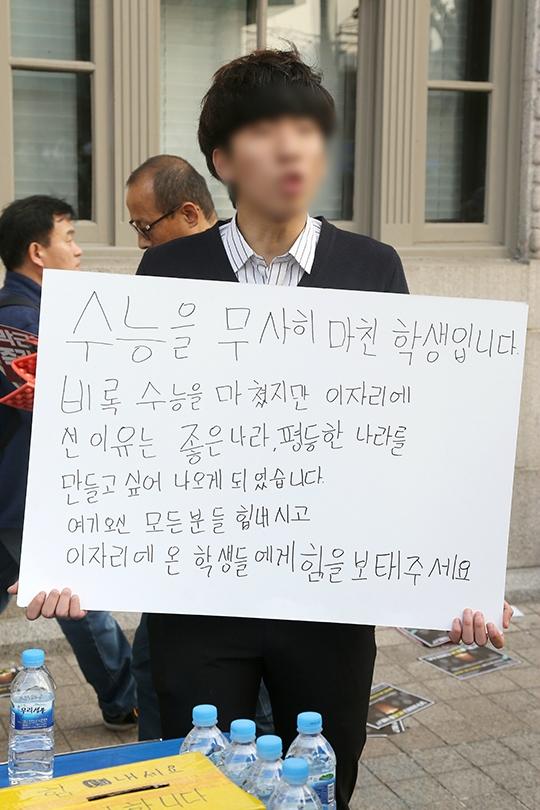 수능을 무사히 마친 학생입니다.
비록 수능을 마쳤지만 이자리에
선 이유는 좋은나라, 평등한 나라를
만들고 싶어 나오게 되었습니다.
여기오신 모든분들 힘내시고
이자리에 온 학생들에게 힘을 보태주세요
힘 내세요